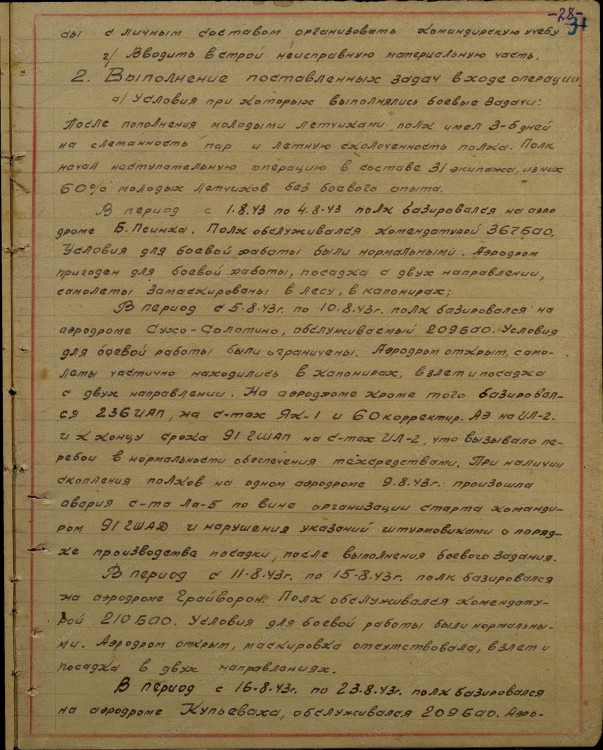 -28-
31
сы с личным составом организовать командирскую учебу
г/ Вводить в строй неисправную материальную часть.
2. Выполнение поставленных задач в ходе операции
а/ Условия при которых выполнялись боевые задачи:
После пополнения молодыми летчиками полк имел 3-5 дней
на слетанность пар и летную сколоченность полка. Полк
начал наступательную операцию в составе 31 экипажа, из них
60% молодых летчиков без боевого опыта.
В период с 1.8.43 по 4.8.43 полк базировался на аэро
дроме Б. Псинка. Полк обслуживался комендатурой 367 БАО.
Условия для боевой работы были нормальными. Аэродром
пригоден для боевой работы, посадка с двух направлении,
самолеты замаскированы в лесу, в капонирах;
В период с 5.8.43г. по 10.8.43г. полк базировался на
аэродроме Сухо-Солотино, обслуживаемый 209 БАО. Условия
для боевой работы были ограничены. Аэродром открыт, само-
леты частично находились в капонирах, взлет и посадка
с двух направлении. На аэродроме кроме того базировал-
ся 236 ИАП, на с-тах Як-1 и 60 корректир. АЭ на ИЛ-2.
и к концу срока 91 ГШАП на с-тах ИЛ-2, что вызывало пе-
ребои в нормальности обеспечения техсредствами. При наличии
скопления полков на одном аэродроме 9.8.43г. произошла
авария с-та Ла-5 по вине организации старта команди-
ром 91 ГШАД и нарушения указаний штурмовиками о поряд-
ке производства посадки, после выполнения боевого задания.
В период с 11.8.43г. по 15.8.43г. полк базировался
на аэродроме Грайворон. Полк обслуживался комендату-
рой 210 БАО. Условия для боевой работы были нормальны-
ми. Аэродром открыт, маскировка отсутствовала, взлет и
посадка в двух направлениях.
В период с 16.8.43г. по 23.8.43г. полк базировался
на аэродроме Купьеваха, обслуживался 209 БАО. Аэро-